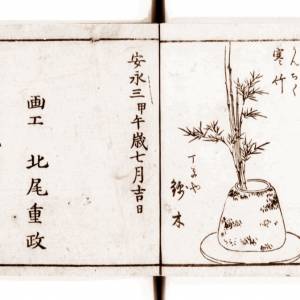 かんちく
寒竹
丁子や
安永三甲午歳七月吉日
画工 北尾重政